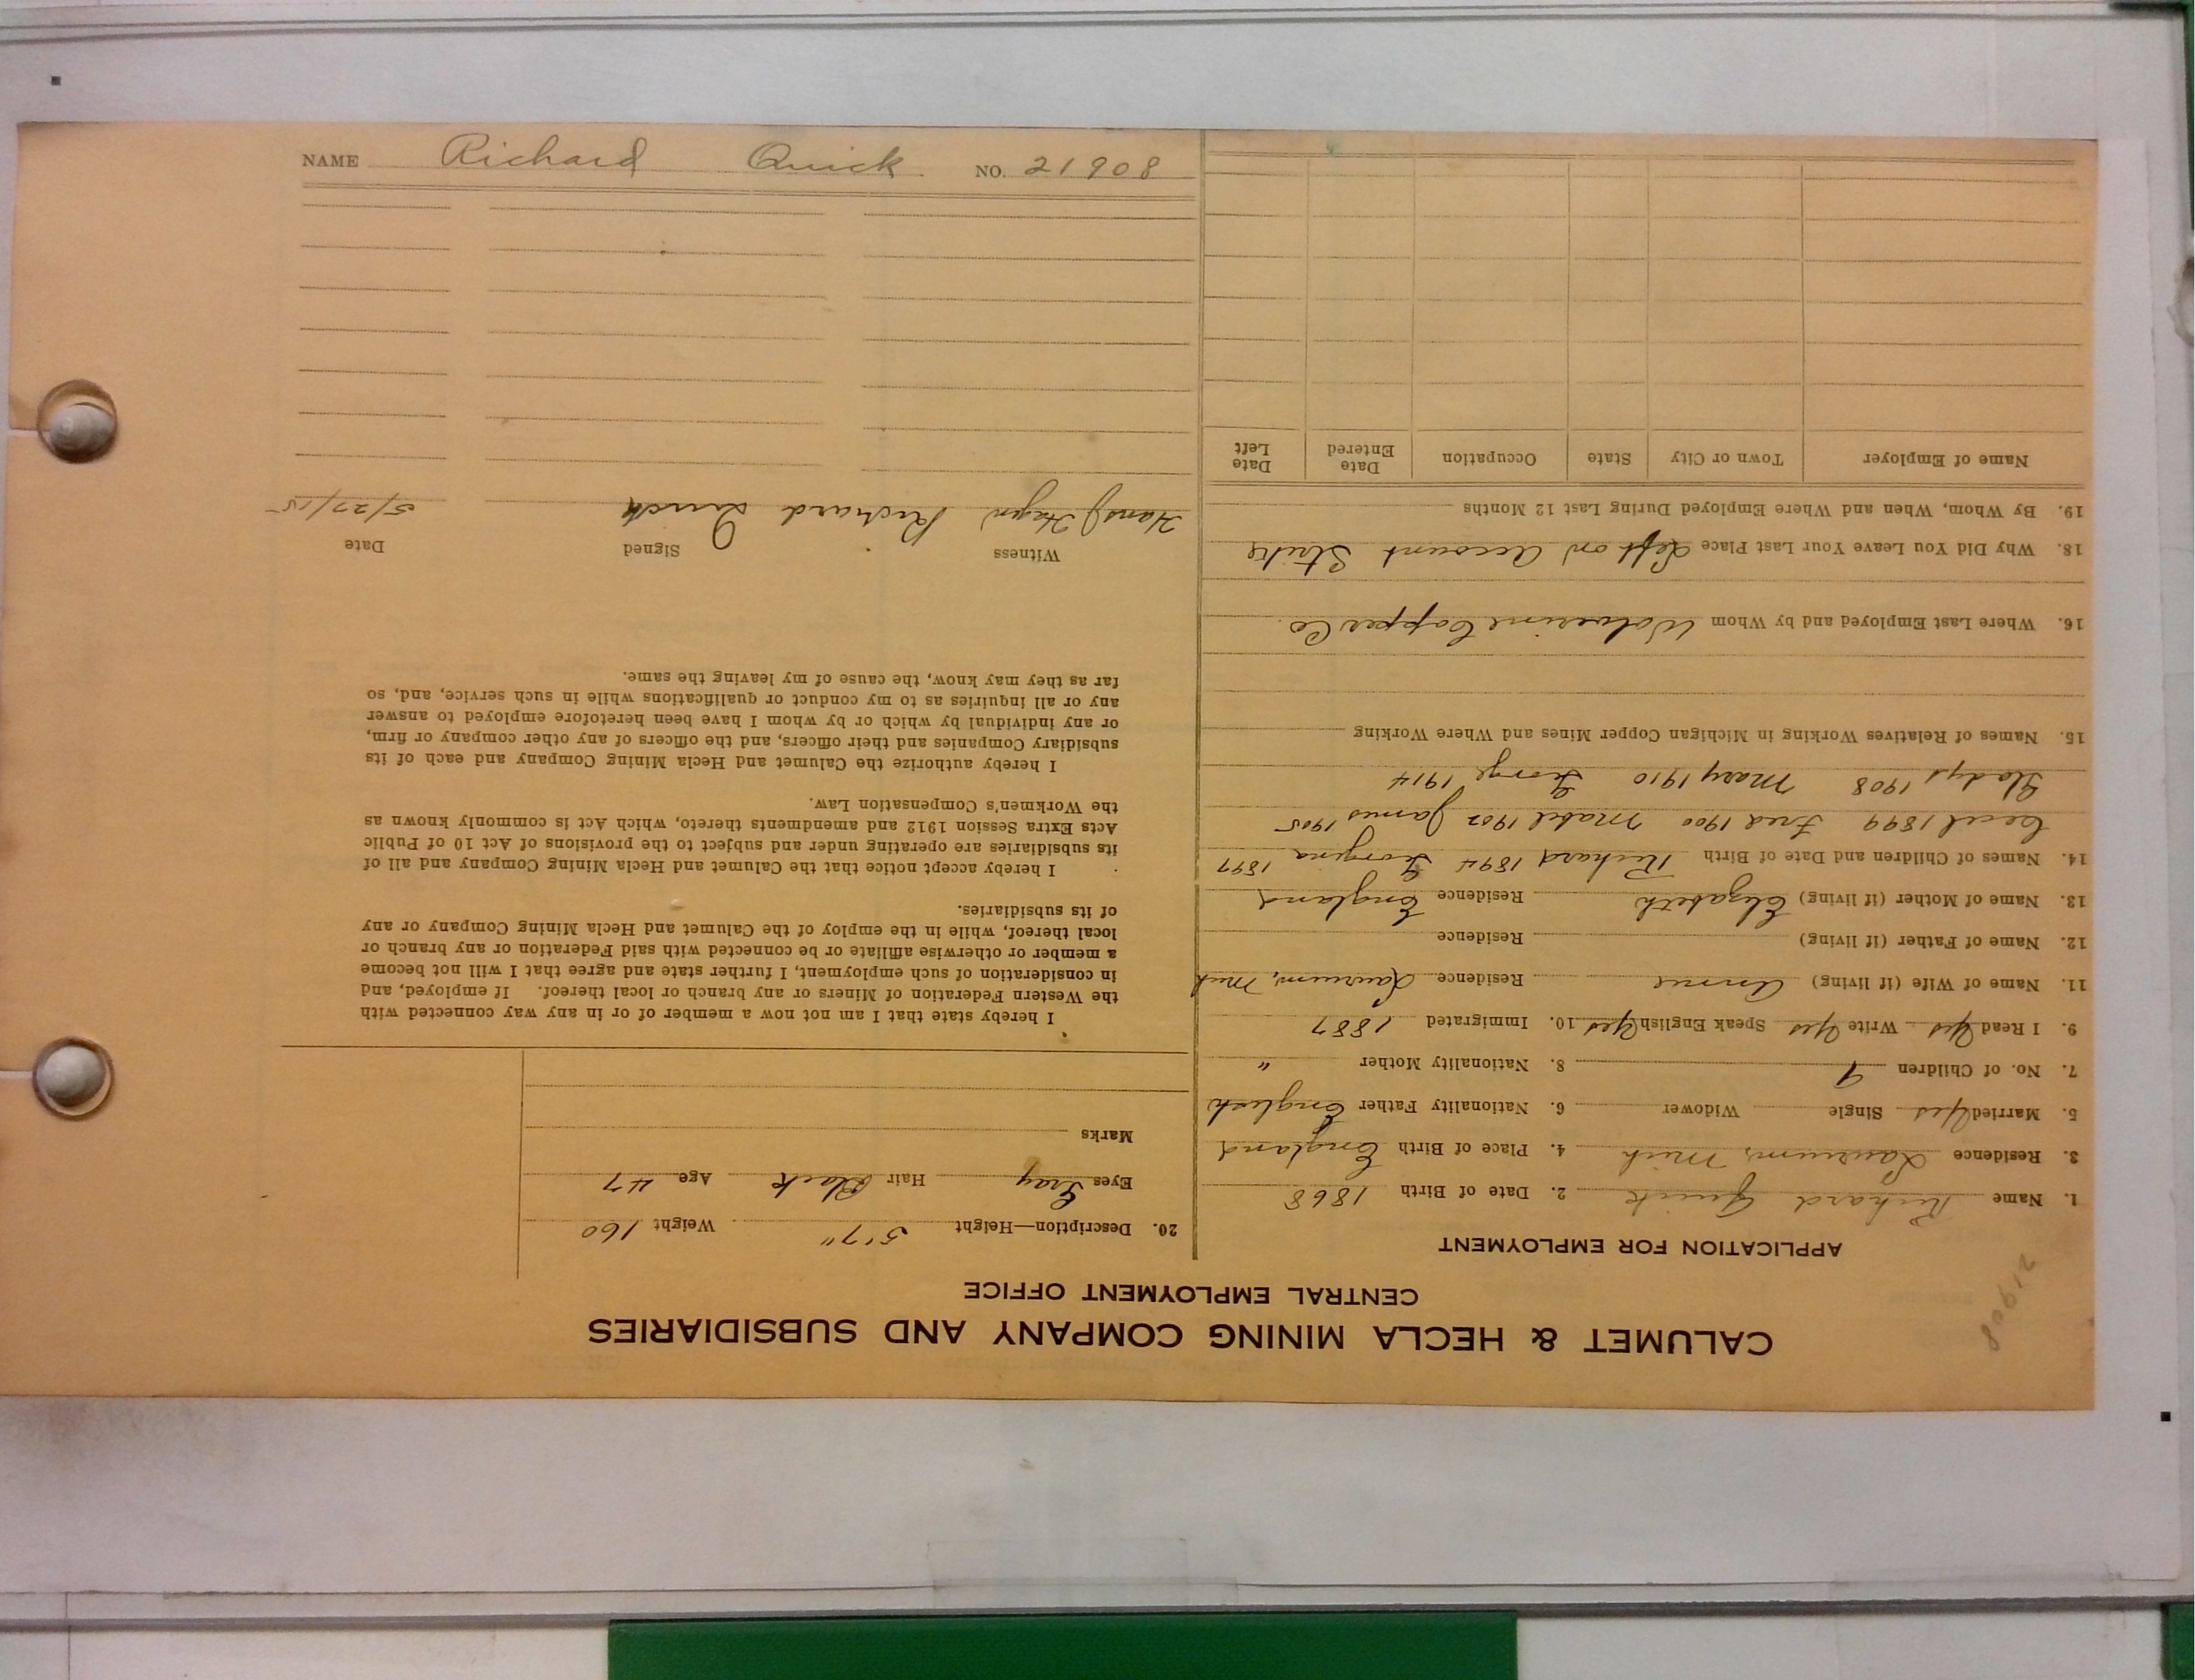 NAME Richard Quick NO. 21908
21908
CALUMET & HECLA MINING COMPANY AND SUBSIDIARIES
CENTRAL EMPLOYMENT OFFICE
APPLICATION FOR EMPLOYMENT
1. Name Richard Quick 2. Date of Birth 1868
3. Residence Laurium, Mich 4. Place of Birth England
5. Married Yes Single Widower 6. Nationality Father English
7. No. of Children 9 8. Nationality Mother "
9. I Read Yes Write Yes Speak English Yes 10. Immigrated 1887
11. Name of Wife (if living) Annie Residence Laurium, Mich
12. Name of Father (if living) Residence
13. Name of Mother (if living) Elizabeth Residence England
14. Names of Children and Date of Birth Richard 1894 Georgina 1897
Cecil 1899 Fred 1900 Mabel 1902 James 1905
Gladys 1908 Mary 1910 George 1914
15. Names of Relatives Working in Michigan Copper Mines and Where Working
16. Where Last Employed and by Whom Wolverine Copper Co.
18. Why Did You Leave Your Last Place Left on Account Strike
19. By Whom, When and Where Employed During Last 12 Months
Name of Employer Town or City State Occupation Date Entered Date Left
20. Description—Height 5'7" Weight 160
Eyes Gray Hair Black Age 47
Marks
I hereby state that I am not now a member of or in any way connected with
the Western Federation of Miners or any branch or local thereof. If employed, and
in consideration of such employment, I further state and agree that I will not become
a member or otherwise affiliate or be connected with said Federation or any branch or
local thereof, while in the employ of the Calumet and Hecla Mining Company or any
of its subsidiaries.
I hereby accept notice that the Calumet and Hecla Mining Company and all of
its subsidiaries are operating under and subject to the provisions of Act 10 of Public
Acts Extra Session 1912 and amendments thereto, which Act is commonly known as
the Workmen's Compensation Law.
I hereby authorize the Calumet and Hecla Mining Company and each of its
subsidiary Companies and their officers, and the officers of any other company or firm,
or any individual by which or by whom I have been heretofore employed to answer
any or all inquiries as to my conduct or qualifications while in such service, and, so
far as they may know, the cause of my leaving the same.
Witness Signed Date
Hans J Hagen Richard Quick 5/27/15